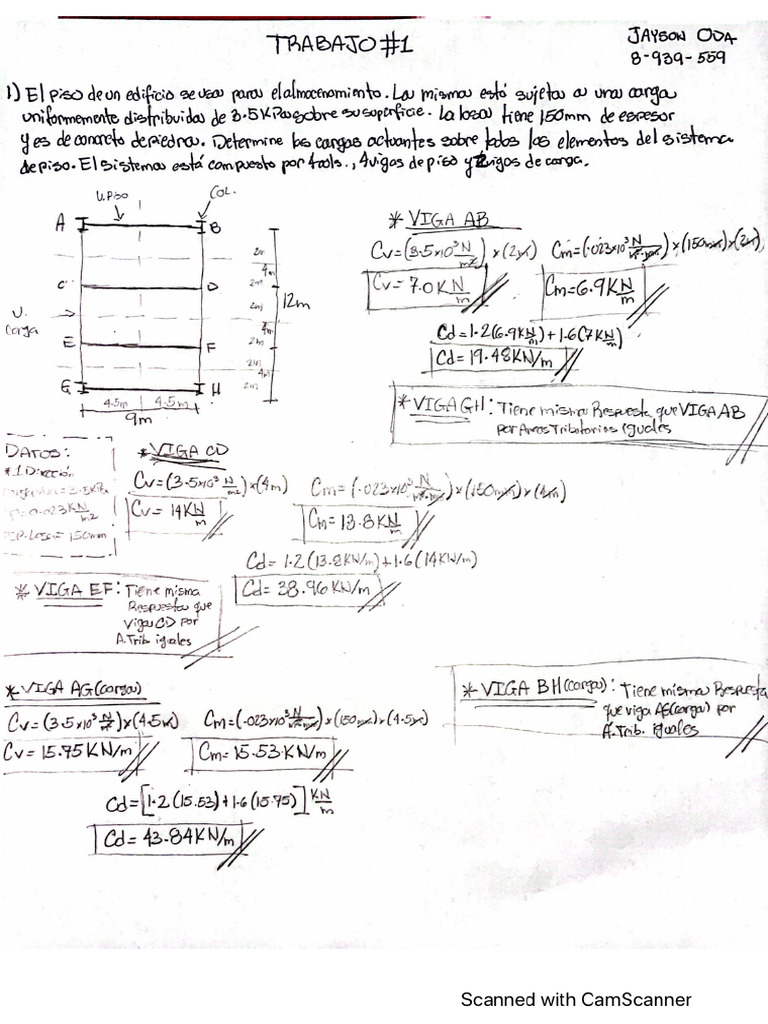 TRABAJO #1
JAYSON ODA
8-939-559
1) El piso de un edificio se usa para el almacenamiento. La misma está sujeta a una carga
uniformemente distribuida de 3.5 KPa sobre su superficie. La losa tiene 150mm de espesor
y es de concreto de piedra. Determine las cargas actuantes sobre todos los elementos del sistema
de piso. El sistema está compuesto por 4 cols., 4 vigas de piso y 2 vigas de carga.
V. Piso
COL.
A
B
2m
4m
C
D
2m
12m
V.
carga
2m
4m
E
F
2m
2m
4m
G
H
2m
4.5m
4.5m
9m
* VIGA AB
Cv=(3.5x10³ N/m²) x (2m)
Cm=(.023x10³ N/m².mm) x (150mm) x (2m)
Cv= 7.0 KN/m
Cm=6.9 KN/m
Cd=1.2(6.9 KN/m)+1.6(7 KN/m)
Cd=19.48 KN/m
* VIGA GH: Tiene misma Respuesta que VIGA AB
por Areas Tributarias iguales
DATOS:
* 1 Dirección
= 3.5KPa
=0.023 KN/m2
ESP. Losa= 150mm
* VIGA CD
Cv=(3.5x10³ N/m2)x(4m)
Cm=(.023x10³ N/m².mm)x(150mm)x(4m)
Cv= 14 KN/m
Cm=13.8 KN/m
Cd= 1.2(13.8 KN/m)+1.6(14 KN/m)
Cd= 38.96 KN/m
* VIGA EF: Tiene misma
Respuesta que
viga CD por
A.Trib iguales
* VIGA AG (carga)
Cv=(3.5x10³ N/m²)x(4.5m)
Cm=(.023x10³ N/m².mm)x(150mm)x(4.5m)
Cv= 15.75 KN/m
Cm= 15.53 KN/m
Cd=[1.2(15.53)+1.6(15.75)] KN/m
Cd= 43.84 KN/m
* VIGA BH (carga): Tiene misma Respuesta
que viga AG (carga) por
A.Trib. iguales
Scanned with CamScanner